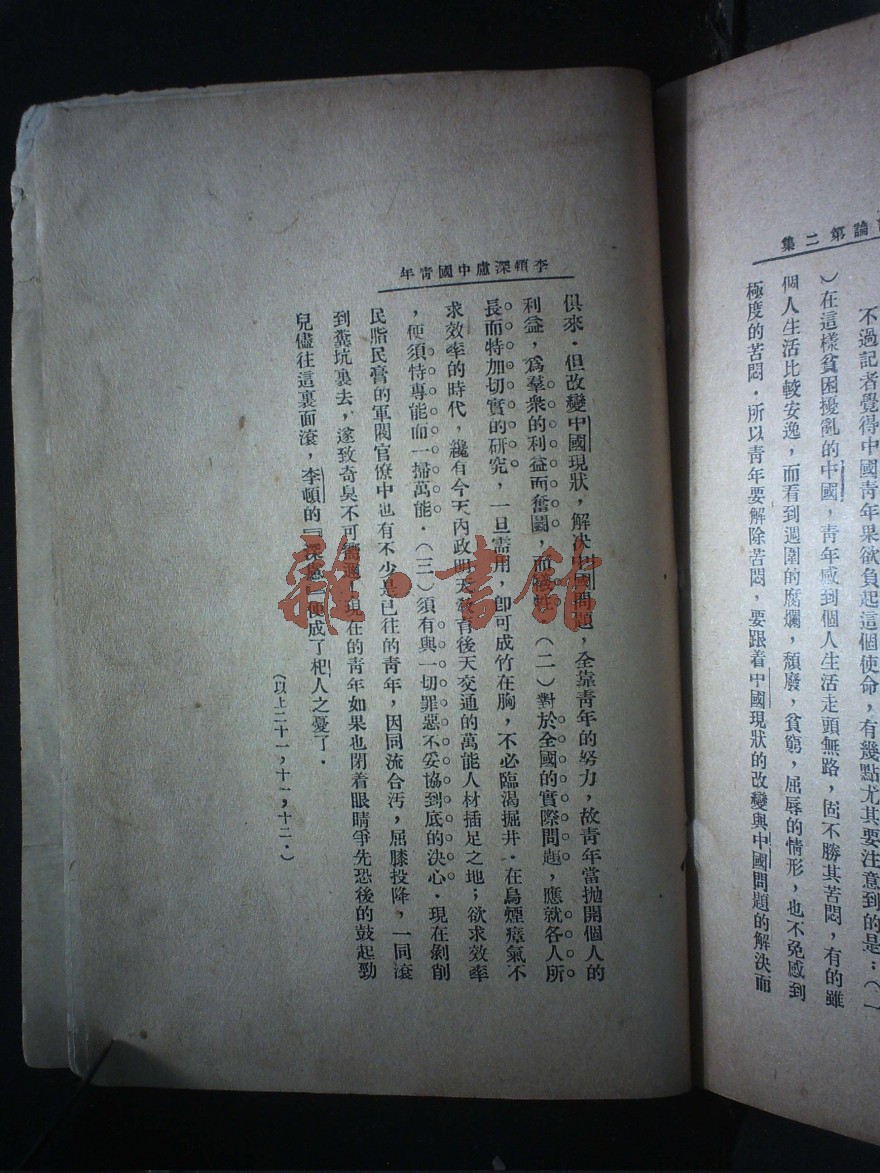 論第二集
不過記者覺得中國青年果欲負起這個使命，有幾點尤其要注意到的是：（一
）在這樣貧困擾亂的中國，青年感到個人生活走頭無路，固不勝其苦悶，有的雖
個人生活比較安逸，而看到週圍的腐爛，頹廢，貧窮，屈辱的情形，也不免感到
極度的苦悶．所以青年要解除苦悶，要跟着中國現狀的改變與中國問題的解決而
李頓深慮中國青年
俱來．但改變中國現狀，解決中國問題，全靠青年的努力，故青年當拋開個人的
利益，為羣衆的利益而奮鬭，而犧牲．（二）對於全國的實際問題，應就各人所
長而特加切實的研究，一旦需用，卽可成竹在胸，不必臨渴掘井．在烏煙瘴氣不
求效率的時代，纔有今天內政明天教育後天交通的萬能人材插足之地；欲求效率
，便須恃專能而一掃萬能．（三）須有與一切罪惡不妥協到底的決心．現在剝削
民脂民膏的軍閥官僚中也有不少是已往的青年，因同流合汚，屈膝投降，一同滾
到糞坑裏去，遂致奇臭不可嚮邇！現在的青年如果也閉着眼睛爭先恐後的鼓起勁
兒儘往這裏面滾，李頓的『深慮』便成了杞人之憂了．
（以上二十一，十一，十二．）
雜·書館